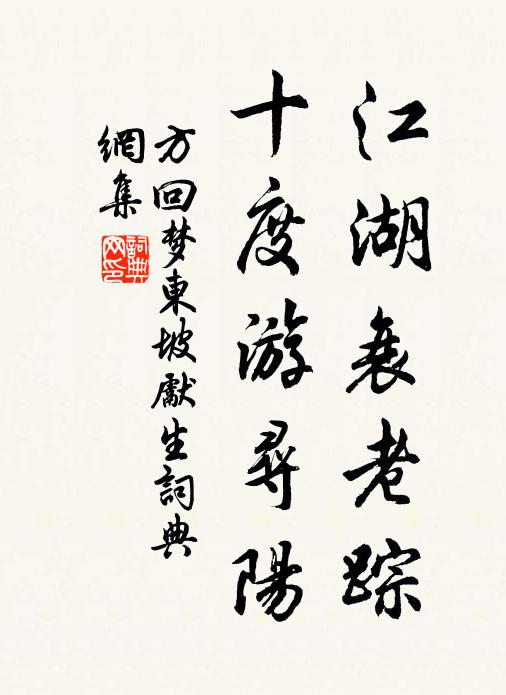 江湖衰老踪
十度游尋陽
方回梦東坡獻生詞典
網集
詞典
网印